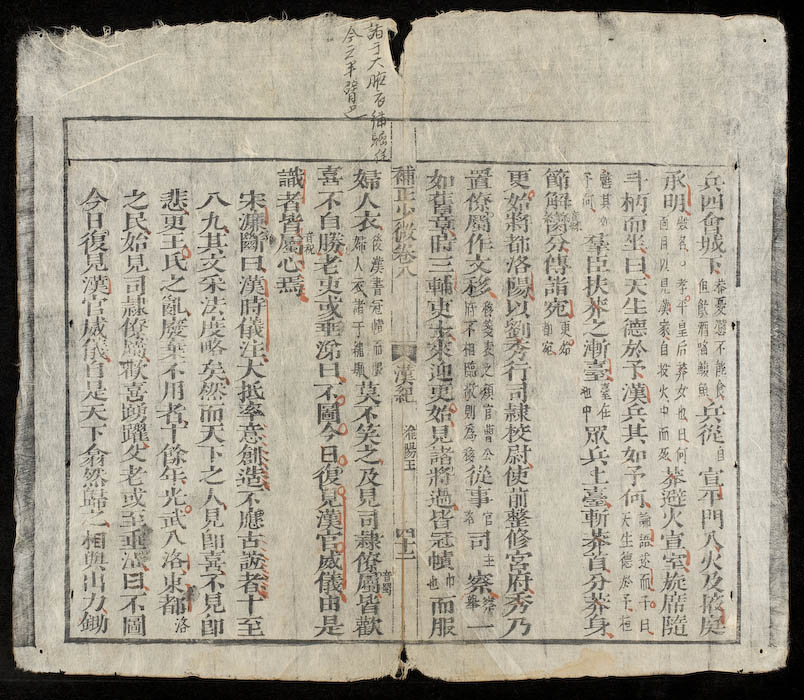 諸于大掖衣繡
今之半臂也
兵四會城下莽憂懣不能食但飲酒啗鰒魚兵從自宣平門入火及掖庭
承明敞名〻孝平皇后莽女也曰何面目以見漢家自投火中而死莽避火宣室旋席隨
斗柄而坐曰天生德於予漢兵其如予何論語述而子曰天生德於予桓
魋其如予何羣臣扶莽之漸臺臺在池中眾兵上臺斬莽首分莽身
節解臠分傳詣宛更始都宛
更始將都洛陽以劉秀行司隸校尉使前整修宮府秀乃
置僚屬作文移官曹公府不相臨敬則為移從事官名司主察察舉一
如舊章時三輔吏士東迎更始見諸將過皆冠幘巾也而服
補正少微卷八 漢紀 淮陽王 四十二
婦人衣後漢書冠幘而服婦人衣諸于繡莫不笑之及見司隸僚屬音蜀皆歡
喜不自勝老吏或垂涕曰不圖今日復見漢官威儀由是
識者皆屬心焉
宋濂斷曰漢時儀注大抵率意創造不應古誼者十至
八九其文采法度略矣然而天下之人見即喜不見即
悲更王氏之亂廢棄不用者十餘年光武入洛東都洛
之民始見司隸僚屬歡喜踴躍父老或至垂涕曰不圖
今日復見漢官威儀自是天下翕然歸之相與出力鋤